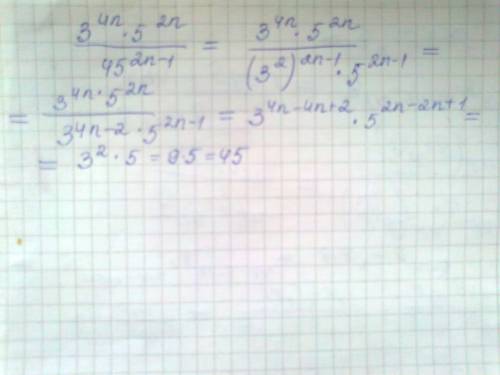 3^{4n} · 5^{2n} / 45^{2n-1} = 3^{4n} · 5^{2n} / (3^2)^{2n-1} · 5^{2n-1} =
= 3^{4n} · 5^{2n} / 3^{4n-2} · 5^{2n-1} = 3^{4n-4n+2} · 5^{2n-2n+1} =
= 3^2 · 5 = 9·5 = 45